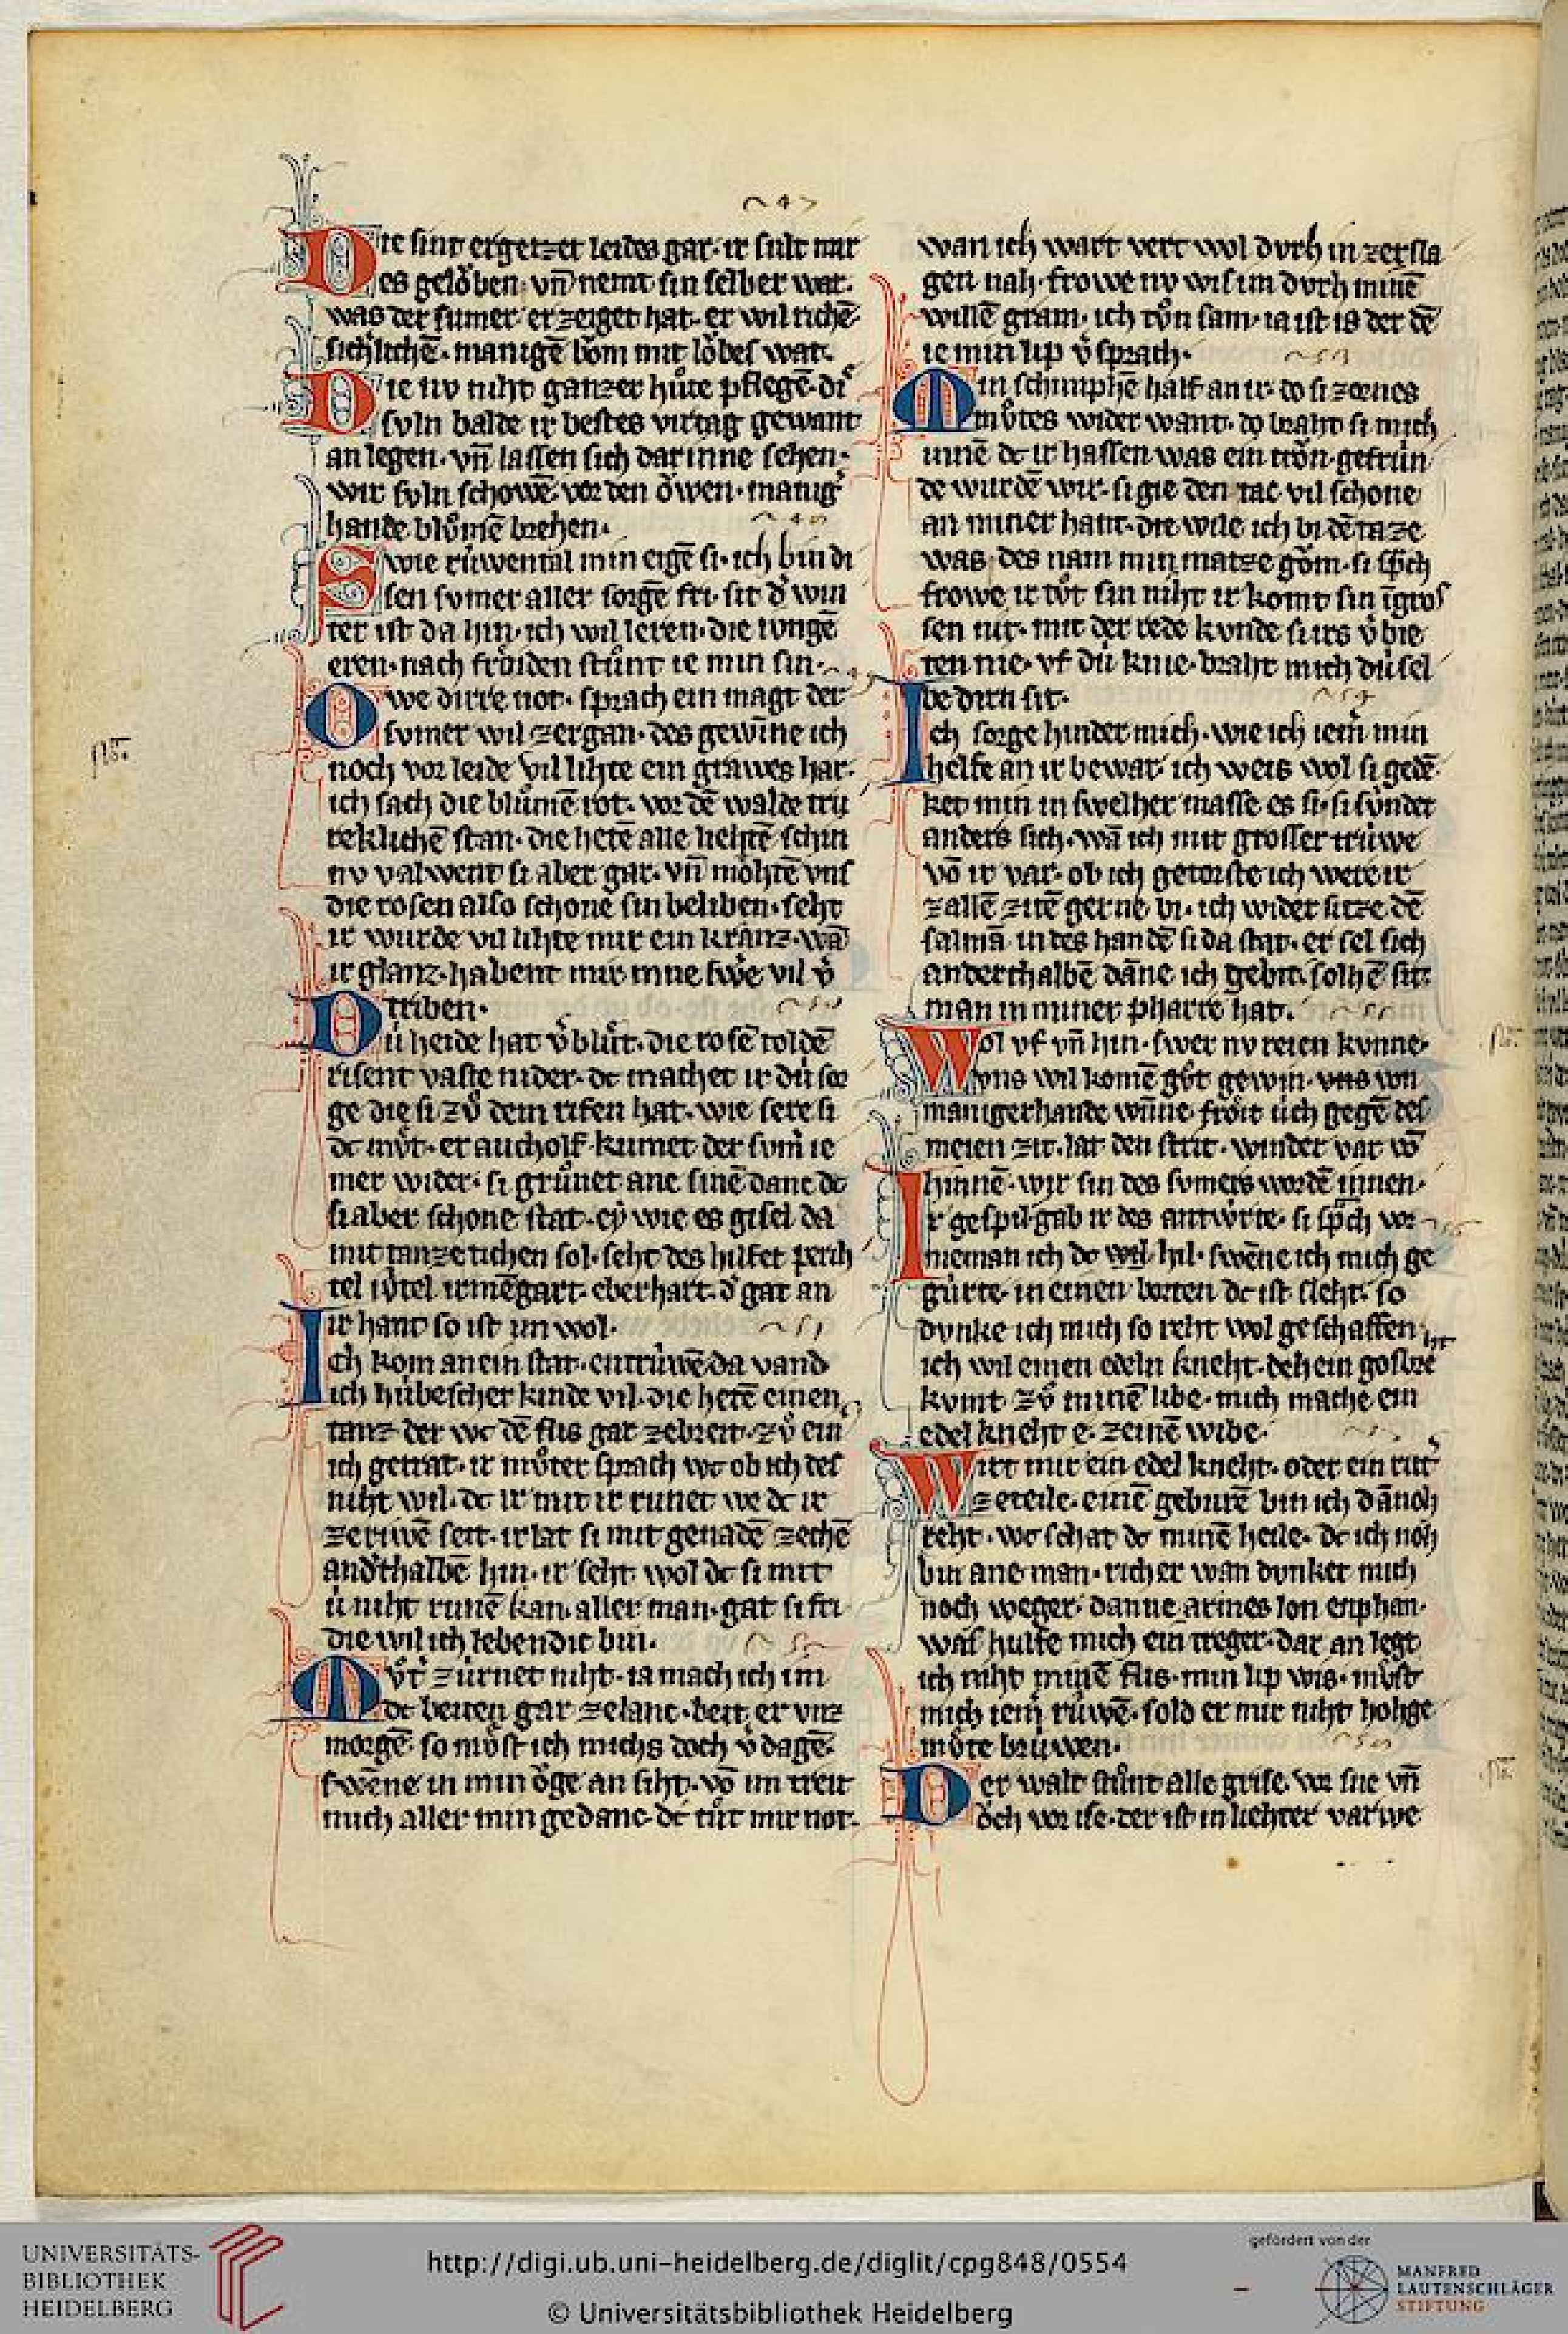 Die sint ergetzet leides gar· ir sult mir
des gelöben· vn̄ nemt sin selber war·
was der sumer erzeiget hat· er wil richē
sichlichē· manigē bǒm mit lǒbes wat·
Die nv niht ganzer hůte pflegē· di
svln balde ir bestes virtag gewant
an legen· vn̄ lassen sich dar inne sehen·
wir svln schowē vor den ǒwen· manig
hande blůmē brehen·
Swie rúwental min eigē si· ich bin di
sen svmer aller sorgē fri· sit d̕ win
ter ist da hin· ich wil leren· die ivngē
eren· nach frǒiden stůnt ie min sin·
Owe dirre not· sprach ein magt der
svmer wil zergan· des gewīne ich
noch vor leide vil lihte ein grawes har·
ich sach die blůmē rot· vor dē walde trú
reklichē stan· die hetē alle liehtē schin
nv valwent si aber gar· vn̄ mǒhtē vns
die rosen also schone sin beliben· seht
ir wurde vil lihte mir ein kranz· wā
ir glanz· habent mir mue swe vil v̕
triben·
Dú heide hat v̕blůt· die rosē toldē
risent vaste nider· dc machet ir dú sor
ge die si zů dem rifen hat· wie sere si
dc můt· er aucholf· kumet der svm̕ ie
mer wider· si grůnet ane sinē danc dc
si aber schone stat· ey wie es gisel da
mit tanze richen sol· seht des hilfet perch
tel iůtel irmēgart· eberhart· d̕ gat an
ir hant so ist im wol·
Ich kom an ein stat· entrúwē da vand
ich húbescher kinde vil· die hetē einen
tanz der wc dē flis gar zebreit· zů ein
ich getrat· ir můter sprach wc ob ich des
niht wil· dc ir mit ir runet we dc ir
zerúwē seit· ir lat si mit genadē zechē
and̕thalbē hin· ir seht wol dc si mit
ú niht runē kan· aller man· gat si fri
die wil ich lebendic bin·
Můt̕ zúrnet niht· ia mach ich im
dc beiten gar zelanc· beit er vnz
morgē· so můst ich michs doch v̕dagē·
swēne in min ǒge an siht· vō im treit
mich aller min gedanc· dc tůt mir not·
wan ich wart vert wol dvrh in zersla
gen nah· frowe nv wis im dvrh minē
willē gram· ich tǒn sam· ia ist is der dē
ie min lip v̕sprach·
Min schimphē half an ir· do si zornes
můtes wider want· do braht si mich
innē dc ir hassen was ein trǒn· gefrún
de wurdē wir· si gie den tac vil schone
an miner hant· die wile ich bi dē taze
was· des nam min matze gǒm· si sp̄ch
frowe ir tǒt sin niht ir komt sin īgros
sen nit· mit der rede kvnde sirs v̕bie
ten nie· vf dú knie· braht mich dú sel
be dirn sit·
Ich sorge hinder mich· wie ich iem̕ min
helfe an ir bewar· ich weis wol si gedē
ket min in swelher masse es si· si sv̊nder
anders sich· wā ich mit grosser trúwe
vō ir var· ob ich getorste ich were ir
zallē zitē gerne bi· ich wider sitze dē
salmā in des handē si da stat· er sel sich
anderthalbē dāne ich gebit· solhē sit·
man in miner pharre hat·
Wol vf vn̄ hin· swer nv reien kvnne·
vns wil komē gůt gewin· vns von
manigerhande wn̄ne· frǒit úch gegē des
meien zit· lat den strit· winder var vō
hinnē· wir sin des svmers wordē innen·
Ir gespil gab ir des antwrte· si sp̄ch vor
nieman ich dc wil hil· swēne ich mich ge
gúrte· in einen borten dc ist sleht· so
dvnke ich mich so reht wol geschaffen·
ich wil einen edeln kneht· dehein goslbre
kvmt zů minē libe· mich mache ein
edel kneht e· zeinē wibe·
Wirt mir ein edel kneht· oder ein rit̕
zeteile· einē geburē bin ich dānoh
reht· wc schat dc minē heile· dc ich noh
bin ane man· richer wan dvnket mich
noch weger· danne armes lon enphan·
was hulfe mich ein treger· dar an legt
ich niht minē flis· min lip wis· můst
mich iem̕ rúwē· sold er mir niht hohge
můte brúwen·
Der walt stůnt alle grise· vor sne vn̄
ǒch vor ise· der ist in liehter varwe
UNIVERSITÄTS-
BIBLIOTHEK
HEIDELBERG
http://digi.ub.uni-heidelberg.de/diglit/cpg848/0554
© Universitätsbibliothek Heidelberg
gefördert von der
MANFRED
LAUTENSCHLÄGER
STIFTUNG